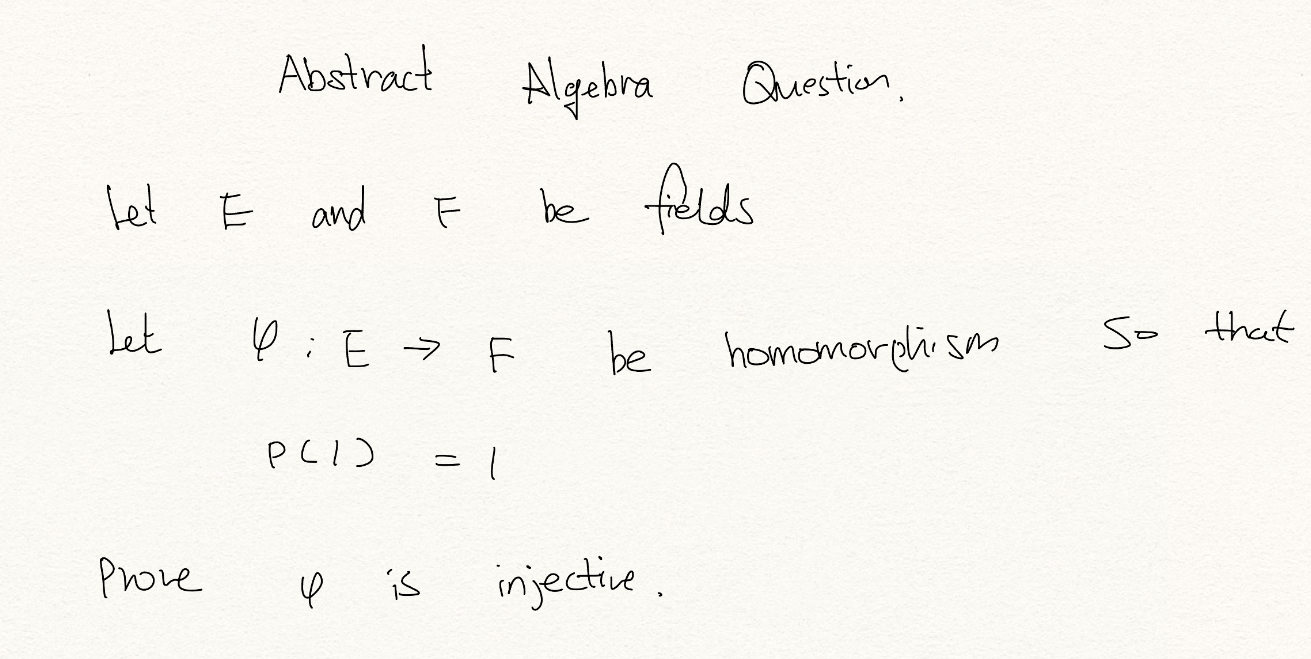 Abstract Algebra Question.
Let E and F be fields
Let φ : E → F be homomorphism so that
P(1) = 1
Prove φ is injective.